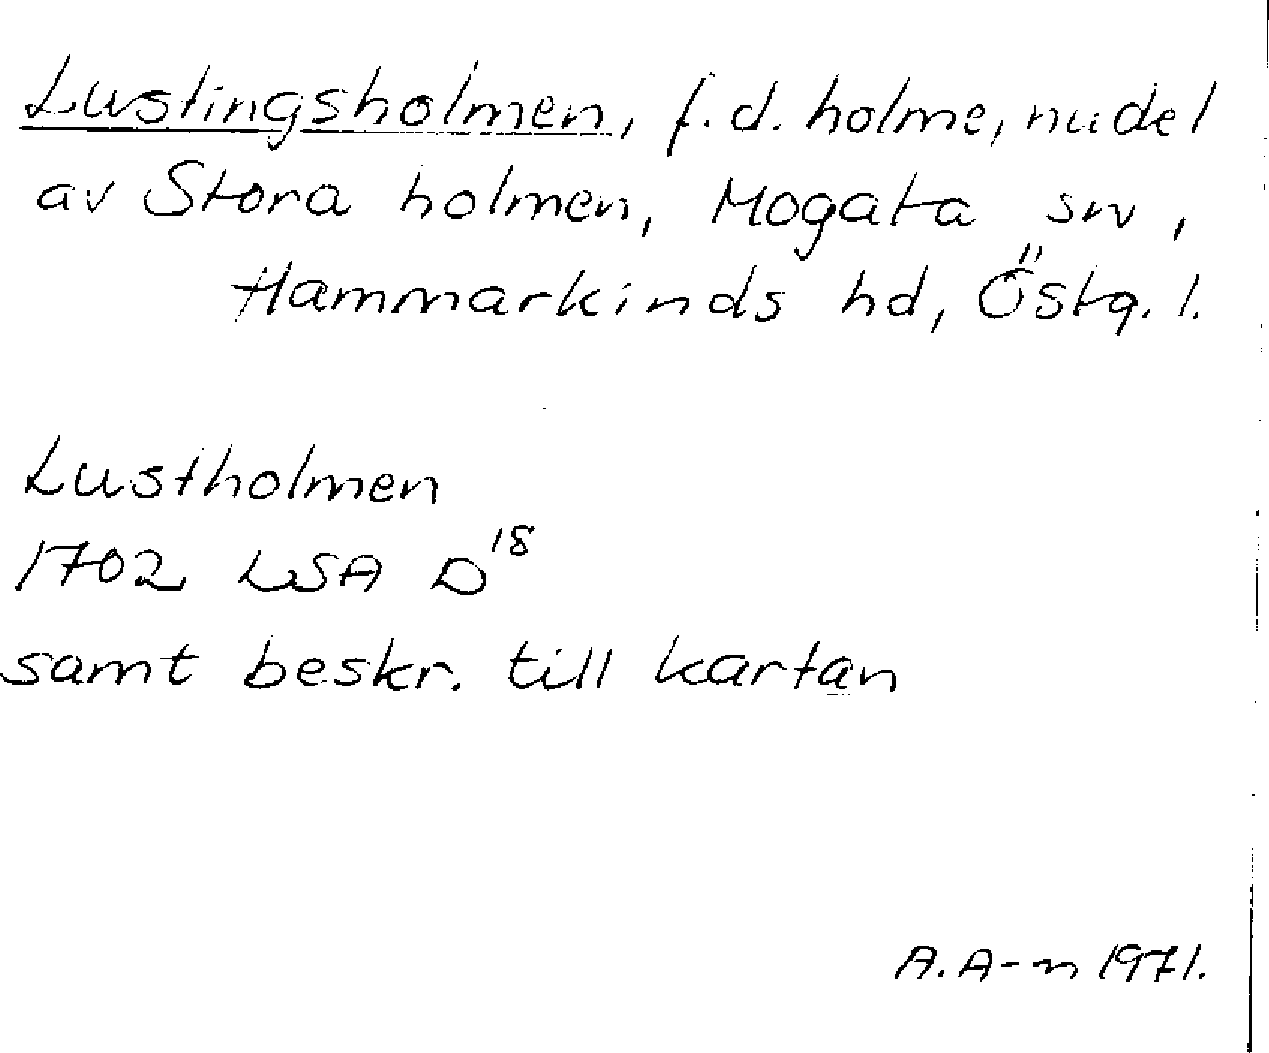 Lustingsholmen, f.d. holme, nu del
av Stora holmen, Mogata sn,
Hammarkinds hd, Östg. l.
Lustholmen
1702 LSA D 18
samt beskr. till kartan
A. A-n 1971.